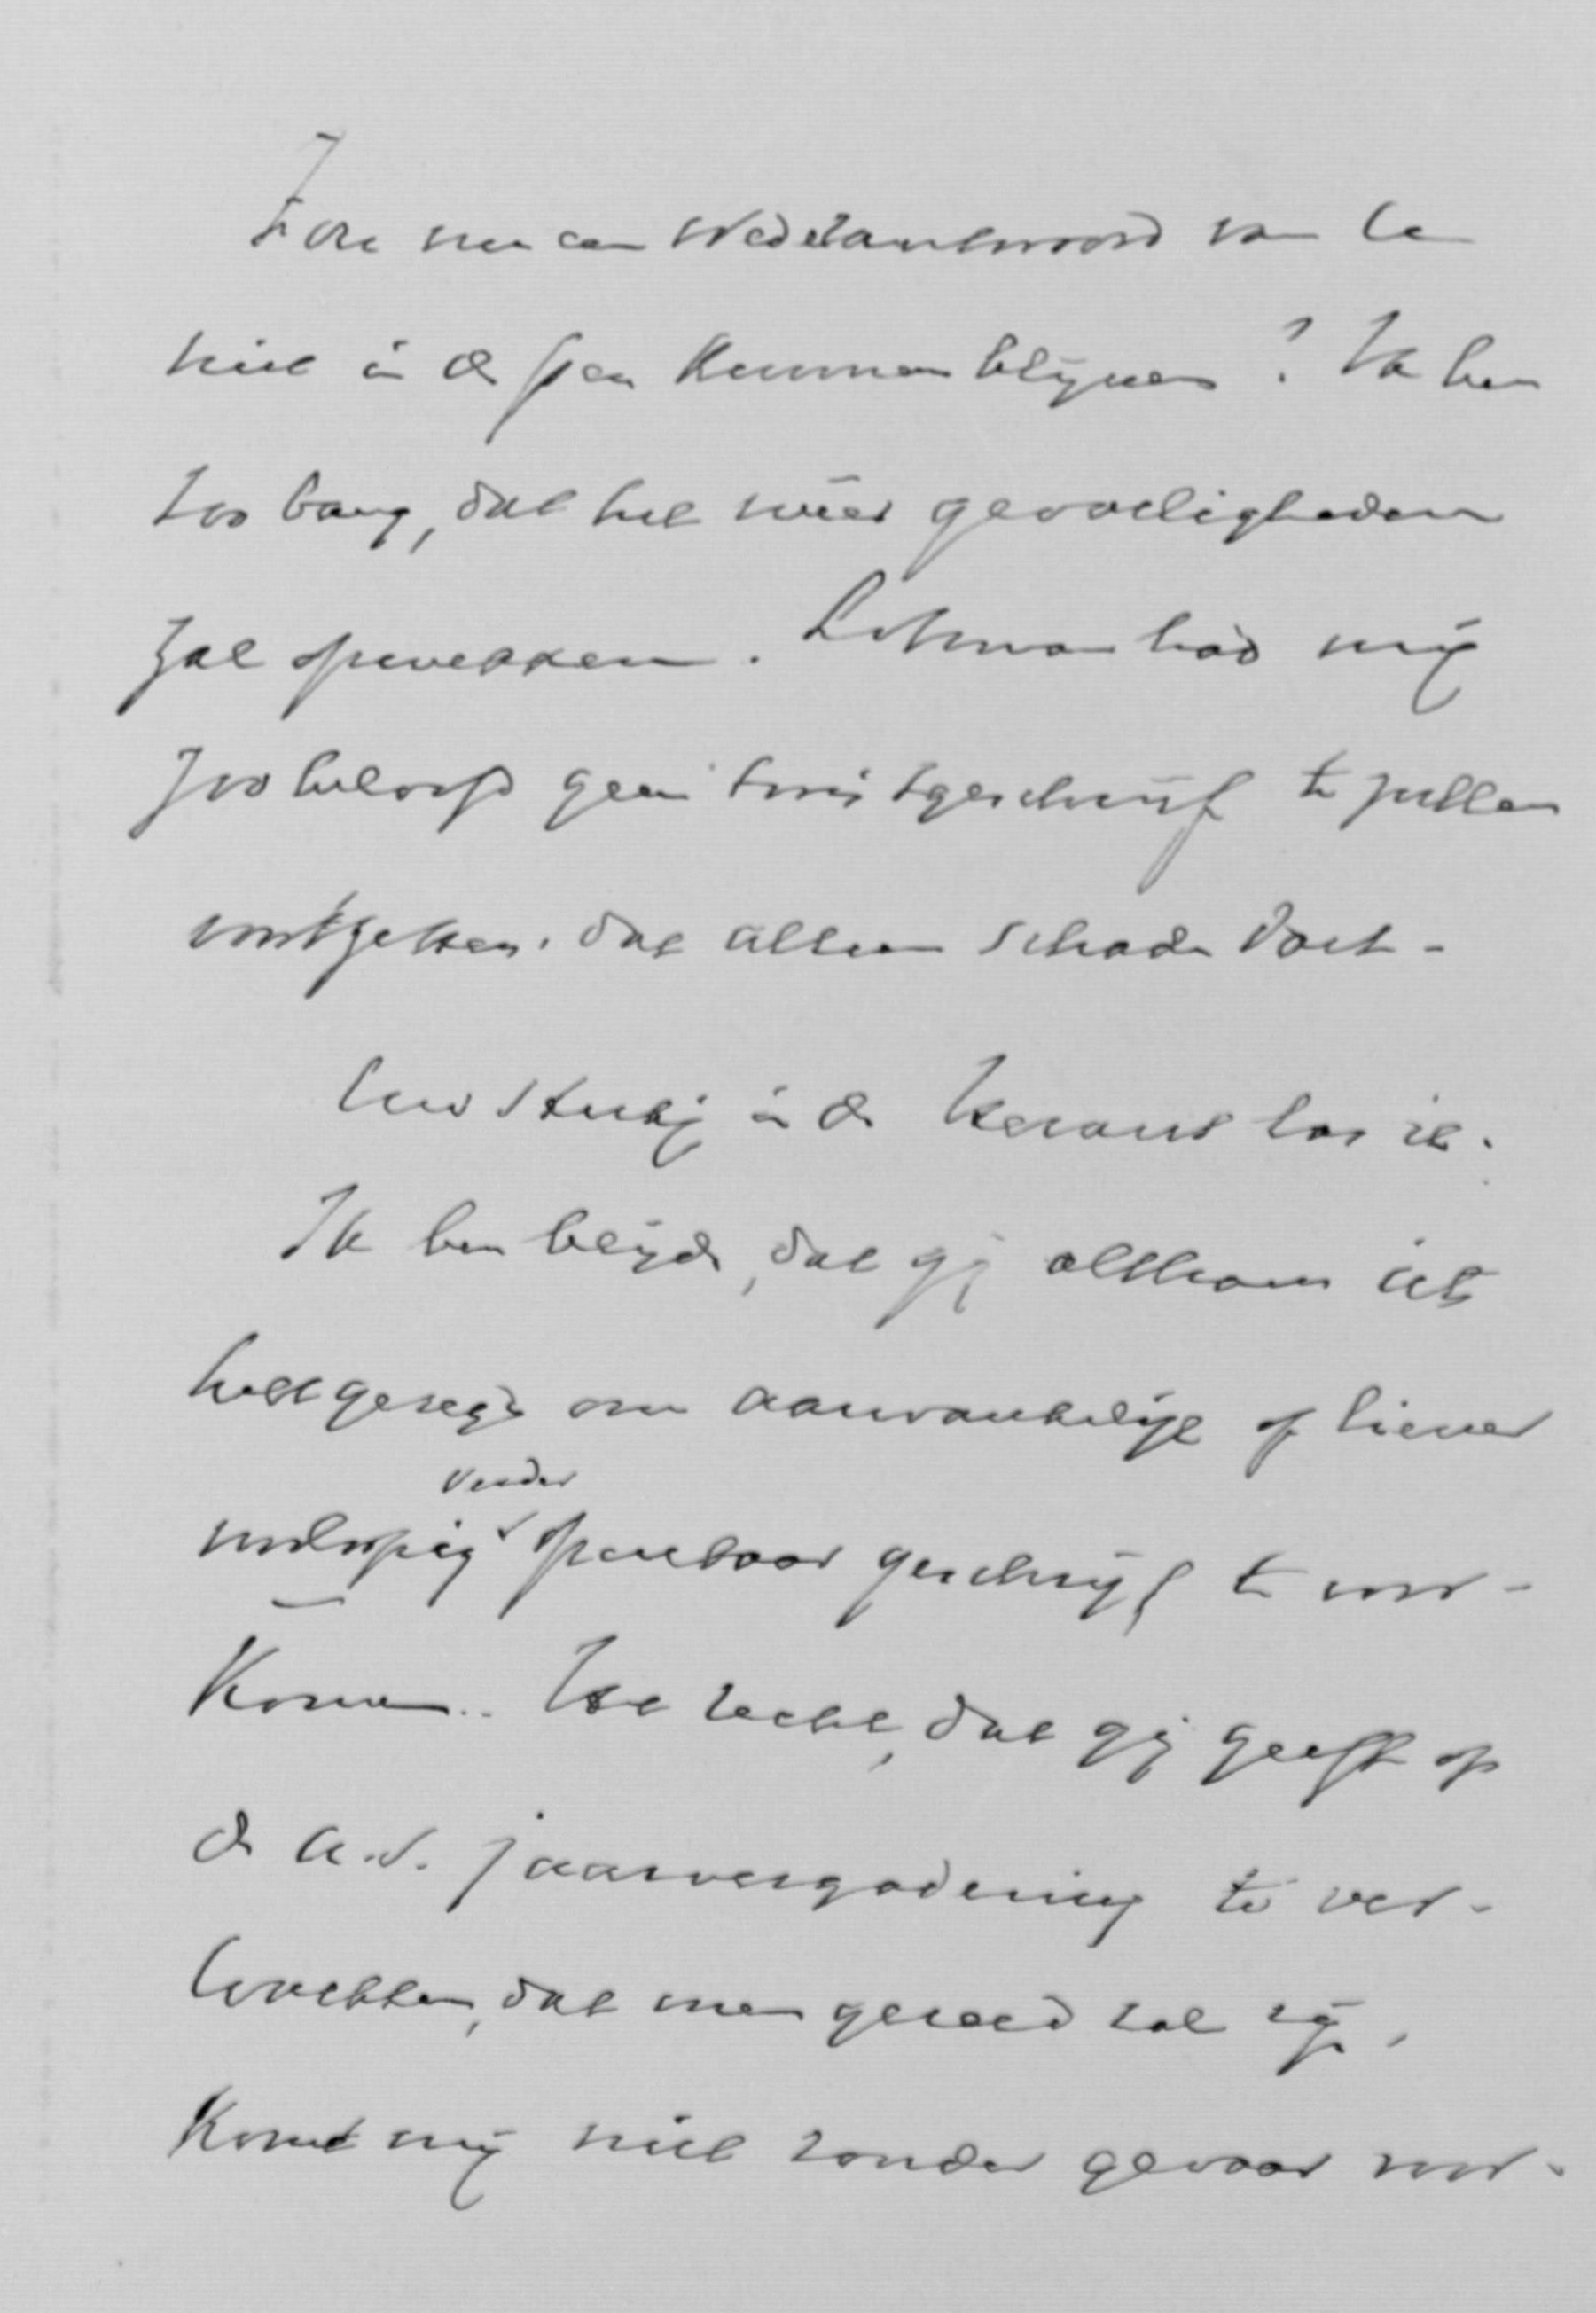 Zou nu een wederantwoord van U
niet in de pen kunnen blijven? Ik ben
zoo bang, dat het weer gevoeligheden
zal opwekken. Lohman had mij
zoo beloofd geen twistgeschrijf te zullen
voortzetten. dat alleen schade doet -
Uw stukje in de Heraut las ik.
Ik ben blijde, dat gij althans iets
hebt gezegd om aanvankelijk of liever
verder
voorloopig openbaar geschrijf te voor-
komen.. Het recht, dat gij geeft op
de a.s. jaarvergadering te ver-
wachten, dat men gereed zal zijn,
komt mij niet zonder gevaar voor.